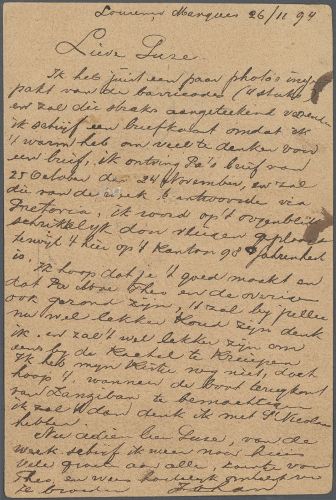 Lourenço Marques 26/11 94
Lieve Suze.
Ik heb juist een paar photo's inge-
pakt van de barricaden (4 stuks)
en zal die straks aangeteekend verzenden
ik schrijf een briefkaart omdat ik
't warm heb om veel te denken voor
een brief, ik ontving Pa's brief van
25 October den 24 November, en zal
die van de week beantwoorden via
Pretoria, ik word op 't oogenblik
schrikkelijk door vliegen geplaagd
terwijl 't hier op 't kantoor 98° Fahrenheit
is.
Ik hoop dat je 't goed maakt en
dat Pa Moe Theo en de overigen
ook gezond zijn, 't zal bij jullie
nu wel lekker koud zijn denk
ik. en zal 't wel lekker zijn om
eens bij de kachel te kruipen
Ik heb mijn kistje nog niet, doch
hoop 't, wanneer de boot terugkomt
van Zanzibar te bemachtigen
ik zal 't dan denk ik met St Nicolaas
hebben.
Nu adieu lieve Suze, van de
week schrijf ik weer naar huis
vele groeten aan alle, zoowel van
Theo, en wees hartelijk omhelsd van
je broeder